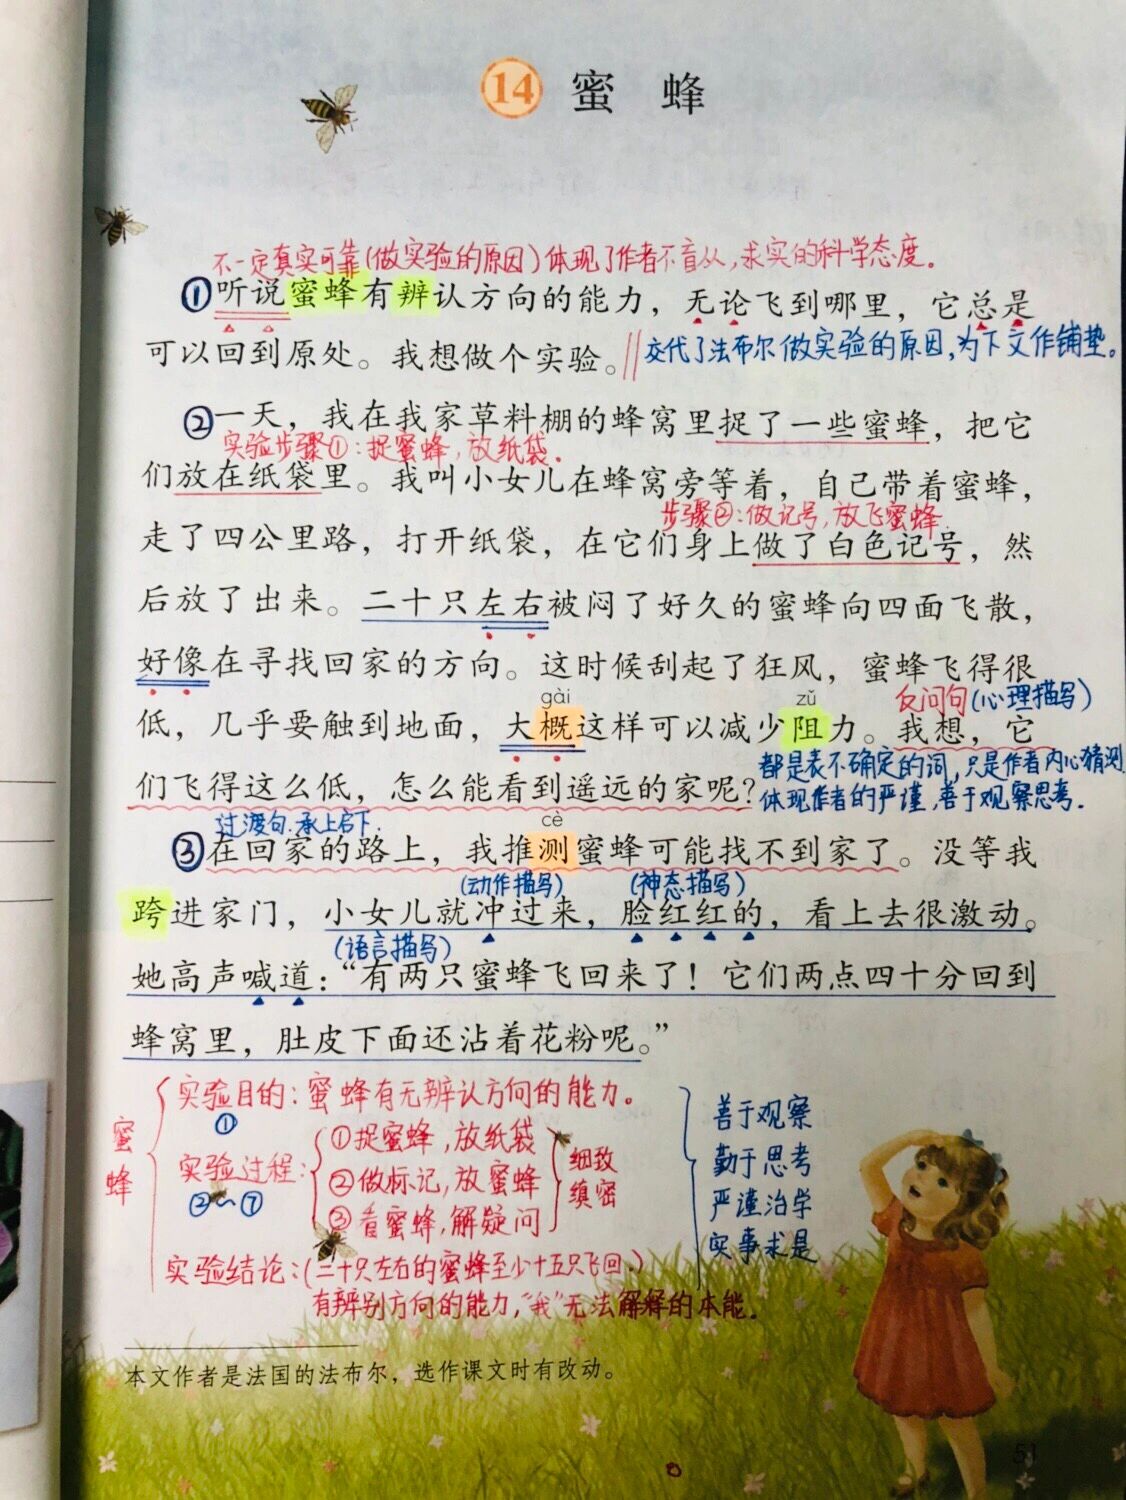 14 蜜蜂
不一定真实可靠(做实验的原因)体现了作者不盲从,求实的科学态度。
①听说蜜蜂有辨认方向的能力，无论飞到哪里，它总是
可以回到原处。我想做个实验。
交代了法布尔做实验的原因,为下文作铺垫。
②一天，我在我家草料棚的蜂窝里捉了一些蜜蜂，把它
实验步骤①:捉蜜蜂,放纸袋.
们放在纸袋里。我叫小女儿在蜂窝旁等着，自己带着蜜蜂，
步骤②:做记号,放飞蜜蜂.
走了四公里路，打开纸袋，在它们身上做了白色记号，然
后放了出来。二十只左右被闷了好久的蜜蜂向四面飞散，
好像在寻找回家的方向。这时候刮起了狂风，蜜蜂飞得很
gài zǔ
反问句(心理描写)
低，几乎要触到地面，大概这样可以减少阻力。我想，它
都是表不确定的词,只是作者内心猜测
们飞得这么低，怎么能看到遥远的家呢?
体现作者的严谨,善于观察思考.
过渡句.承上启下.
cè
③在回家的路上，我推测蜜蜂可能找不到家了。没等我
(动作描写) (神态描写)
跨进家门，小女儿就冲过来，脸红红的，看上去很激动。
(语言描写)
她高声喊道：“有两只蜜蜂飞回来了！它们两点四十分回到
蜂窝里，肚皮下面还沾着花粉呢。”
蜜蜂
实验目的:蜜蜂有无辨认方向的能力。
①
实验过程:
②~⑦
①捉蜜蜂,放纸袋
②做标记,放蜜蜂
③看蜜蜂,解疑问
细致
缜密
实验结论:(二十只左右的蜜蜂至少十五只飞回.)
有辨别方向的能力,“我”无法解释的本能。
善于观察
勤于思考
严谨治学
实事求是
本文作者是法国的法布尔，选作课文时有改动。
51